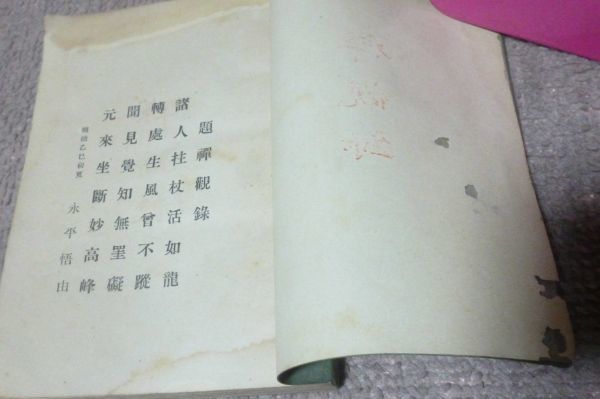 題禪觀錄
諸人拄杖活如龍
轉處生風曾不蹤
聞見覺知無罣礙
元來坐斷妙高峰
明治乙巳初夏
永平悟由